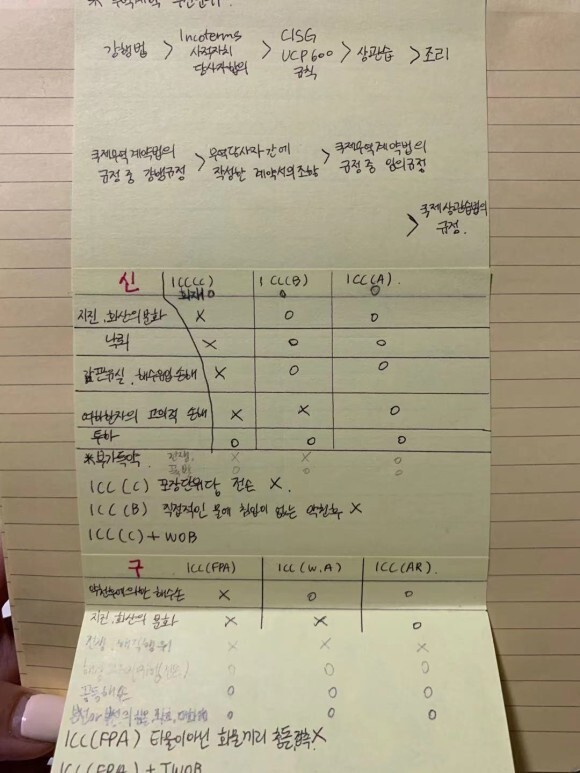 강행법 > Incoterms 사적자치 당사자합의 > CISG UCP600 규칙 > 상관습 > 조리
국제무역계약법의 규정 중 강행규정 > 무역당사자간에 작성한 계약서의 조항 > 국제무역계약법의 규정 중 임의규정
> 국제상관습법의 규정.
신 ICC(C) ICC(B) ICC(A).
화재 o o o
지진.화산의 분화 x o o
낙뢰 x o o
갑판유실.해수침입손해 x o o
여하한자의 고의적 손해 x x o
투하 o o o
*부가특약 전쟁. x x o
o o o
ICC (C) 포장단위당 전손 X.
ICC (B) 직접적인 물에 침입이 없는 악천후 X
ICC(C) + WOB
구 ICC(FPA) ICC(W.A) ICC(AR).
악천후에의한 해수손 x o o
지진.화산의 분화 x x o
전쟁. x x x
o o o
공동해손 o o o
o o o
ICC(FPA) 타물이아닌 화물끼리 충돌접촉X
ICC(FPA) + TWOB